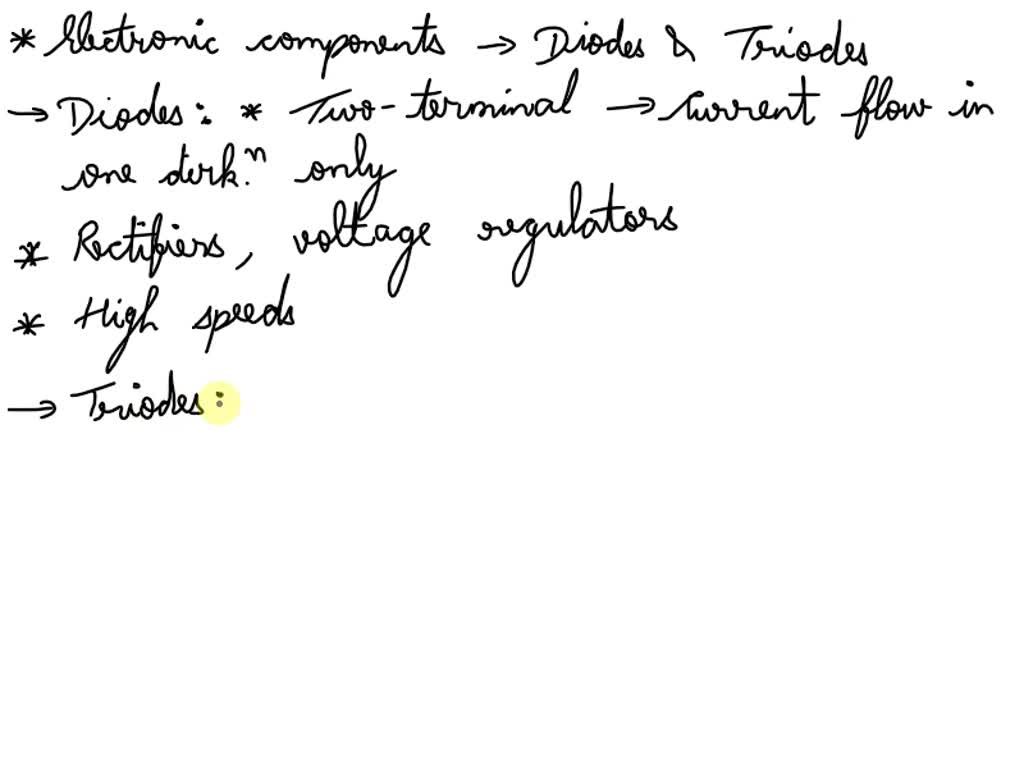 * Electronic components → Diodes & Triodes
→ Diodes: * Two-terminal → Current flow in
one dirk.n only
* Rectifiers, voltage regulators
* High speeds
→ Triodes: